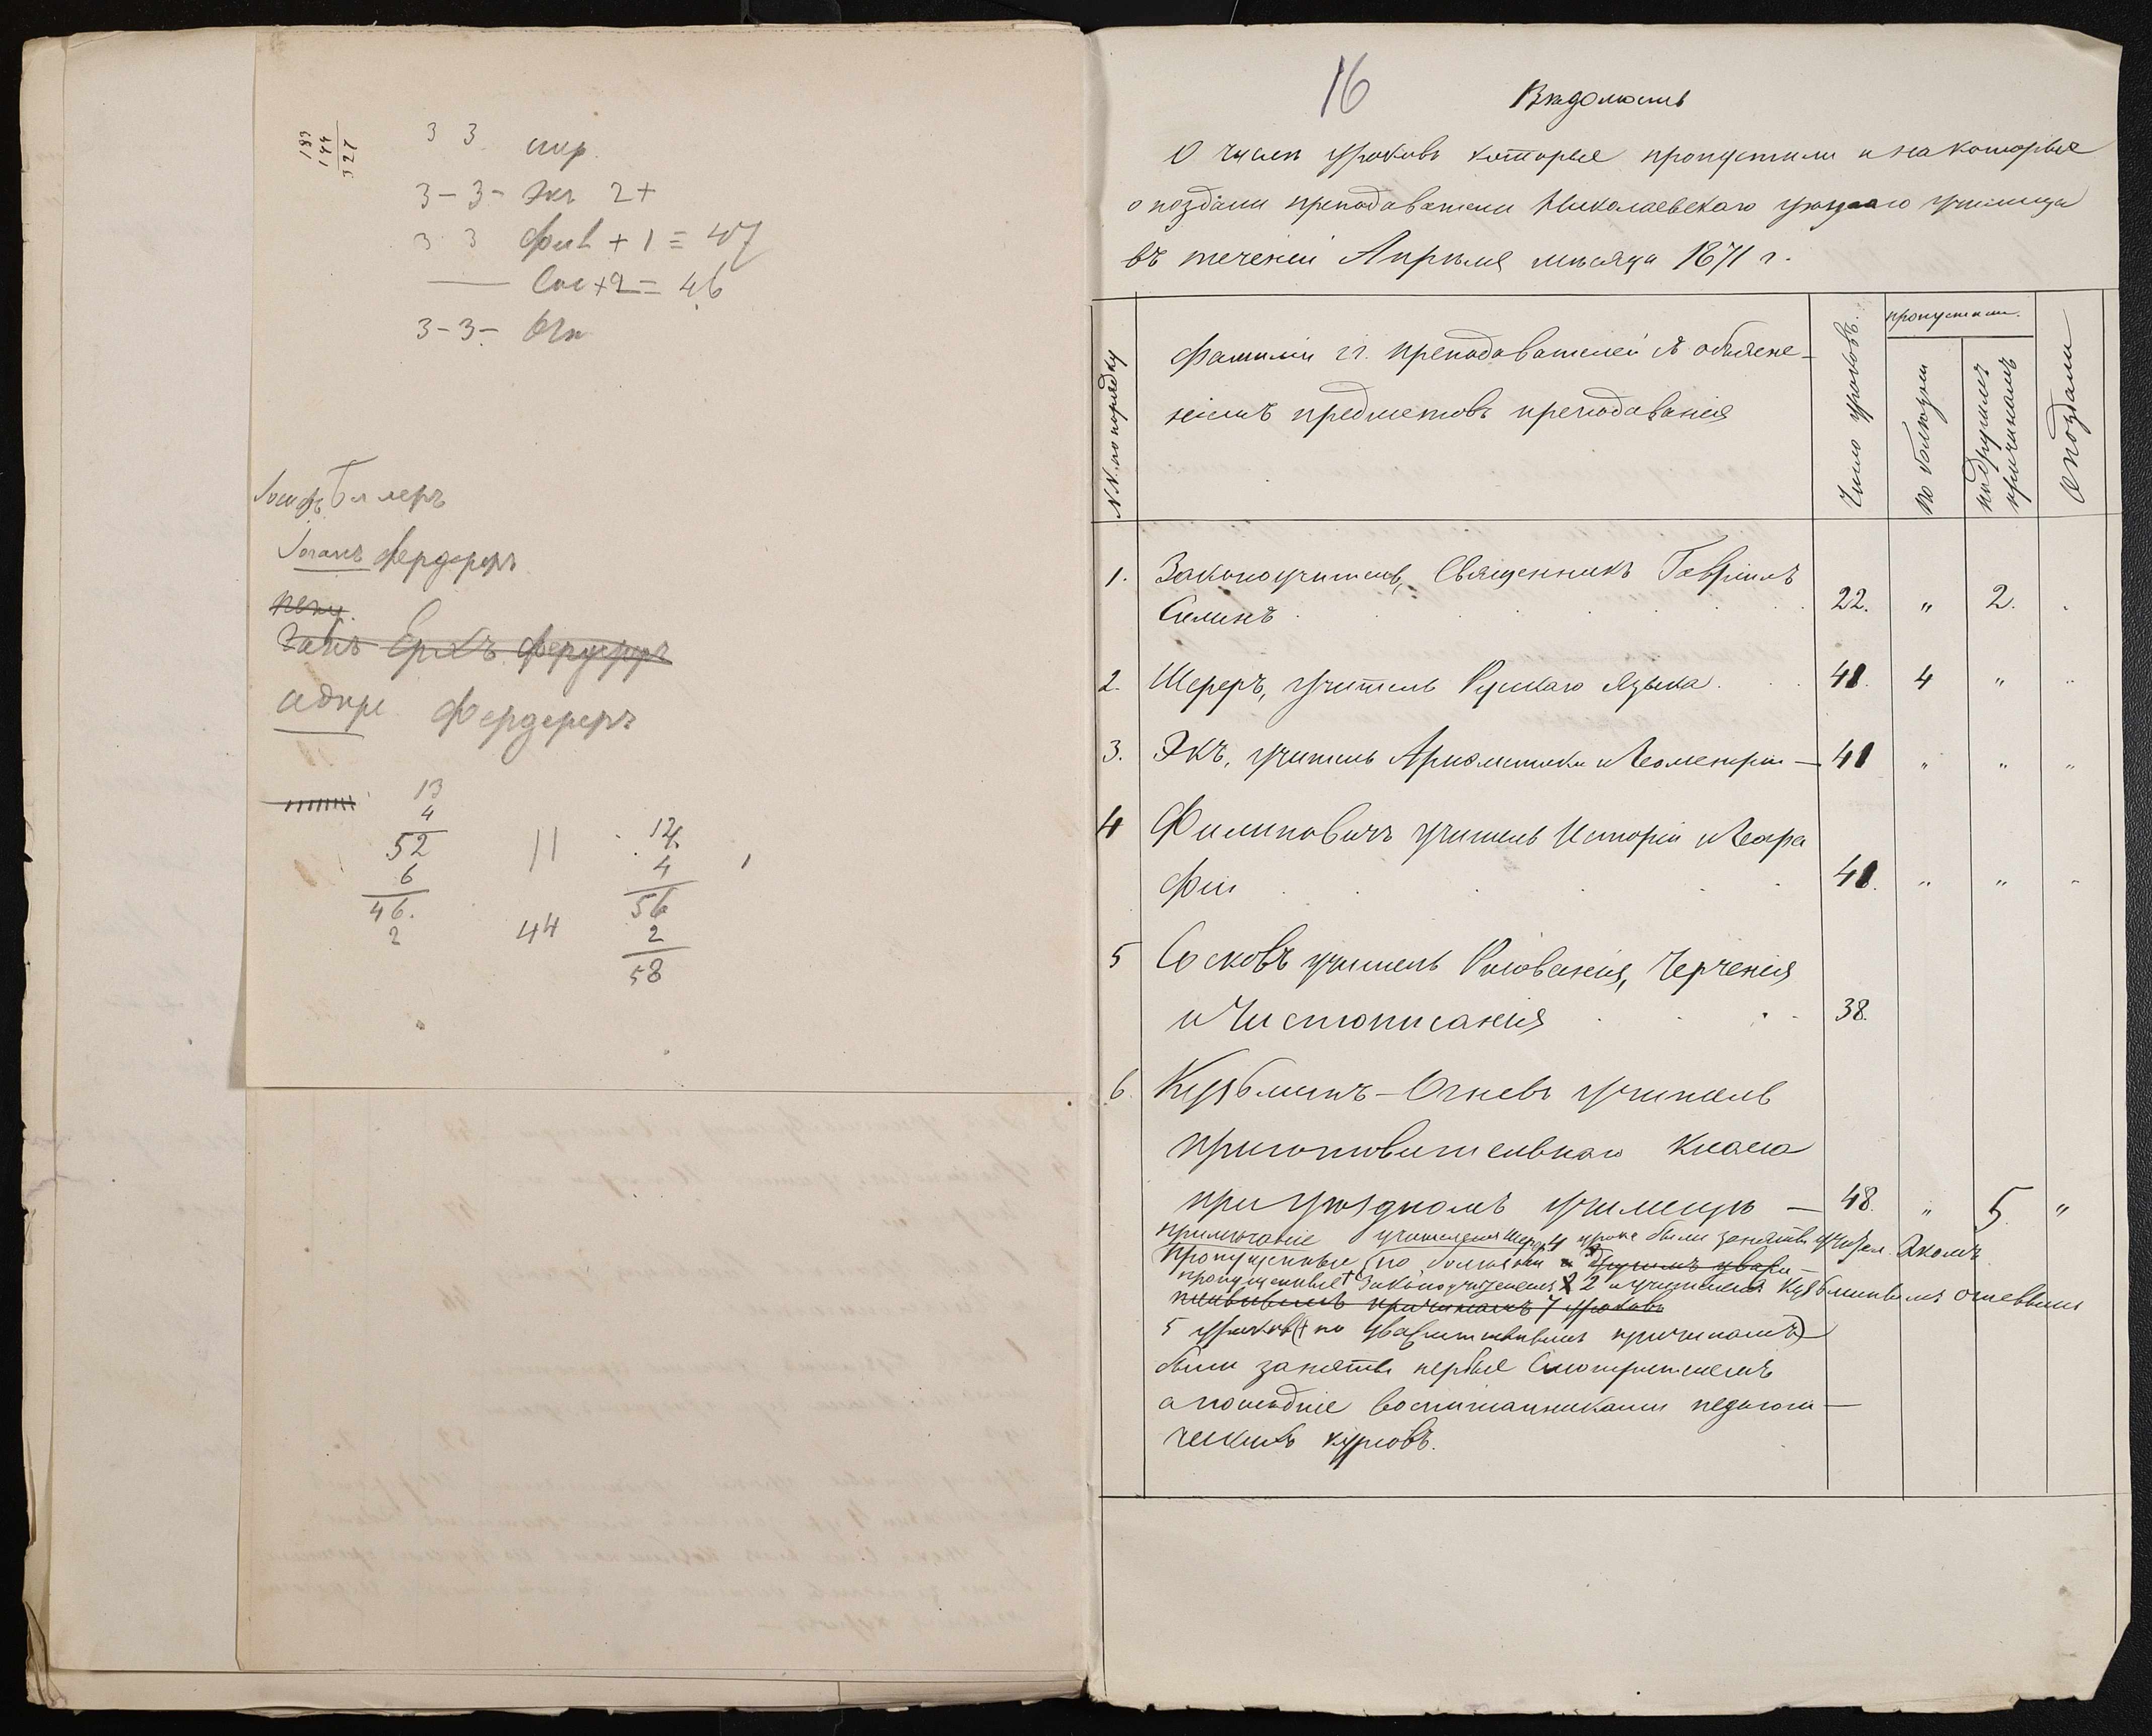 327
144
183
3 3 шер.
3-3- Экъ 2+
3 3 Фил + 1 = 47
Сос +2 = 46
3-3- Огн
Іосифъ Гиллеръ
Іоганъ Фердереръ
Ганъ Ерихъ Фердереръ
Фердереръ
13
4
52
6
46.
2
11
44
14
4
56
2
58
16
Вѣдомость
О числѣ уроковъ которые пропустили и на которые
опоздали преподаватели Николаевскаго уѣзднаго училища
въ теченіи Апрѣля мѣсяца 1871 г.
NN. по порядку
Фамиліи гг. преподавателей съ объясне-
ніемъ предметовъ преподаванія
Число уроковъ.
пропустили.
по болѣзни
по другимъ причинамъ
Опоздали
1. Законоучитель, Священникъ Гавріилъ
Силинъ 22. " 2.
2. Шереръ, учитель Русскаго языка 41. 4 " "
3. Экъ, учитель Ариѳметики и Геометріи — 41 " " "
4 Филиповичъ учитель Исторіи и Геогра
фіи 41. " " "
5 Сосковъ учитель Рисованія, Черченія
и Чистописанія 38.
6. Кузьминъ-Огневъ учитель
приготовительнаго класса
при уѣздномъ училищѣ — 48. " 5. "
примѣчаніе учителемъ Шерер 4 урока были заняты учител. Экомъ
Пропущенные по болѣзни и другимъ уважи-
пропущенные Законоучителемъ 2 и учителемъ Кузьминымъ Огневымъ
причинамъ 7 уроковъ
5 уроковъ (по уважительнымъ причинамъ)
были заняты первые Смотрителемъ
а послѣдніе воспитанниками педагоги-
ческихъ курсовъ.